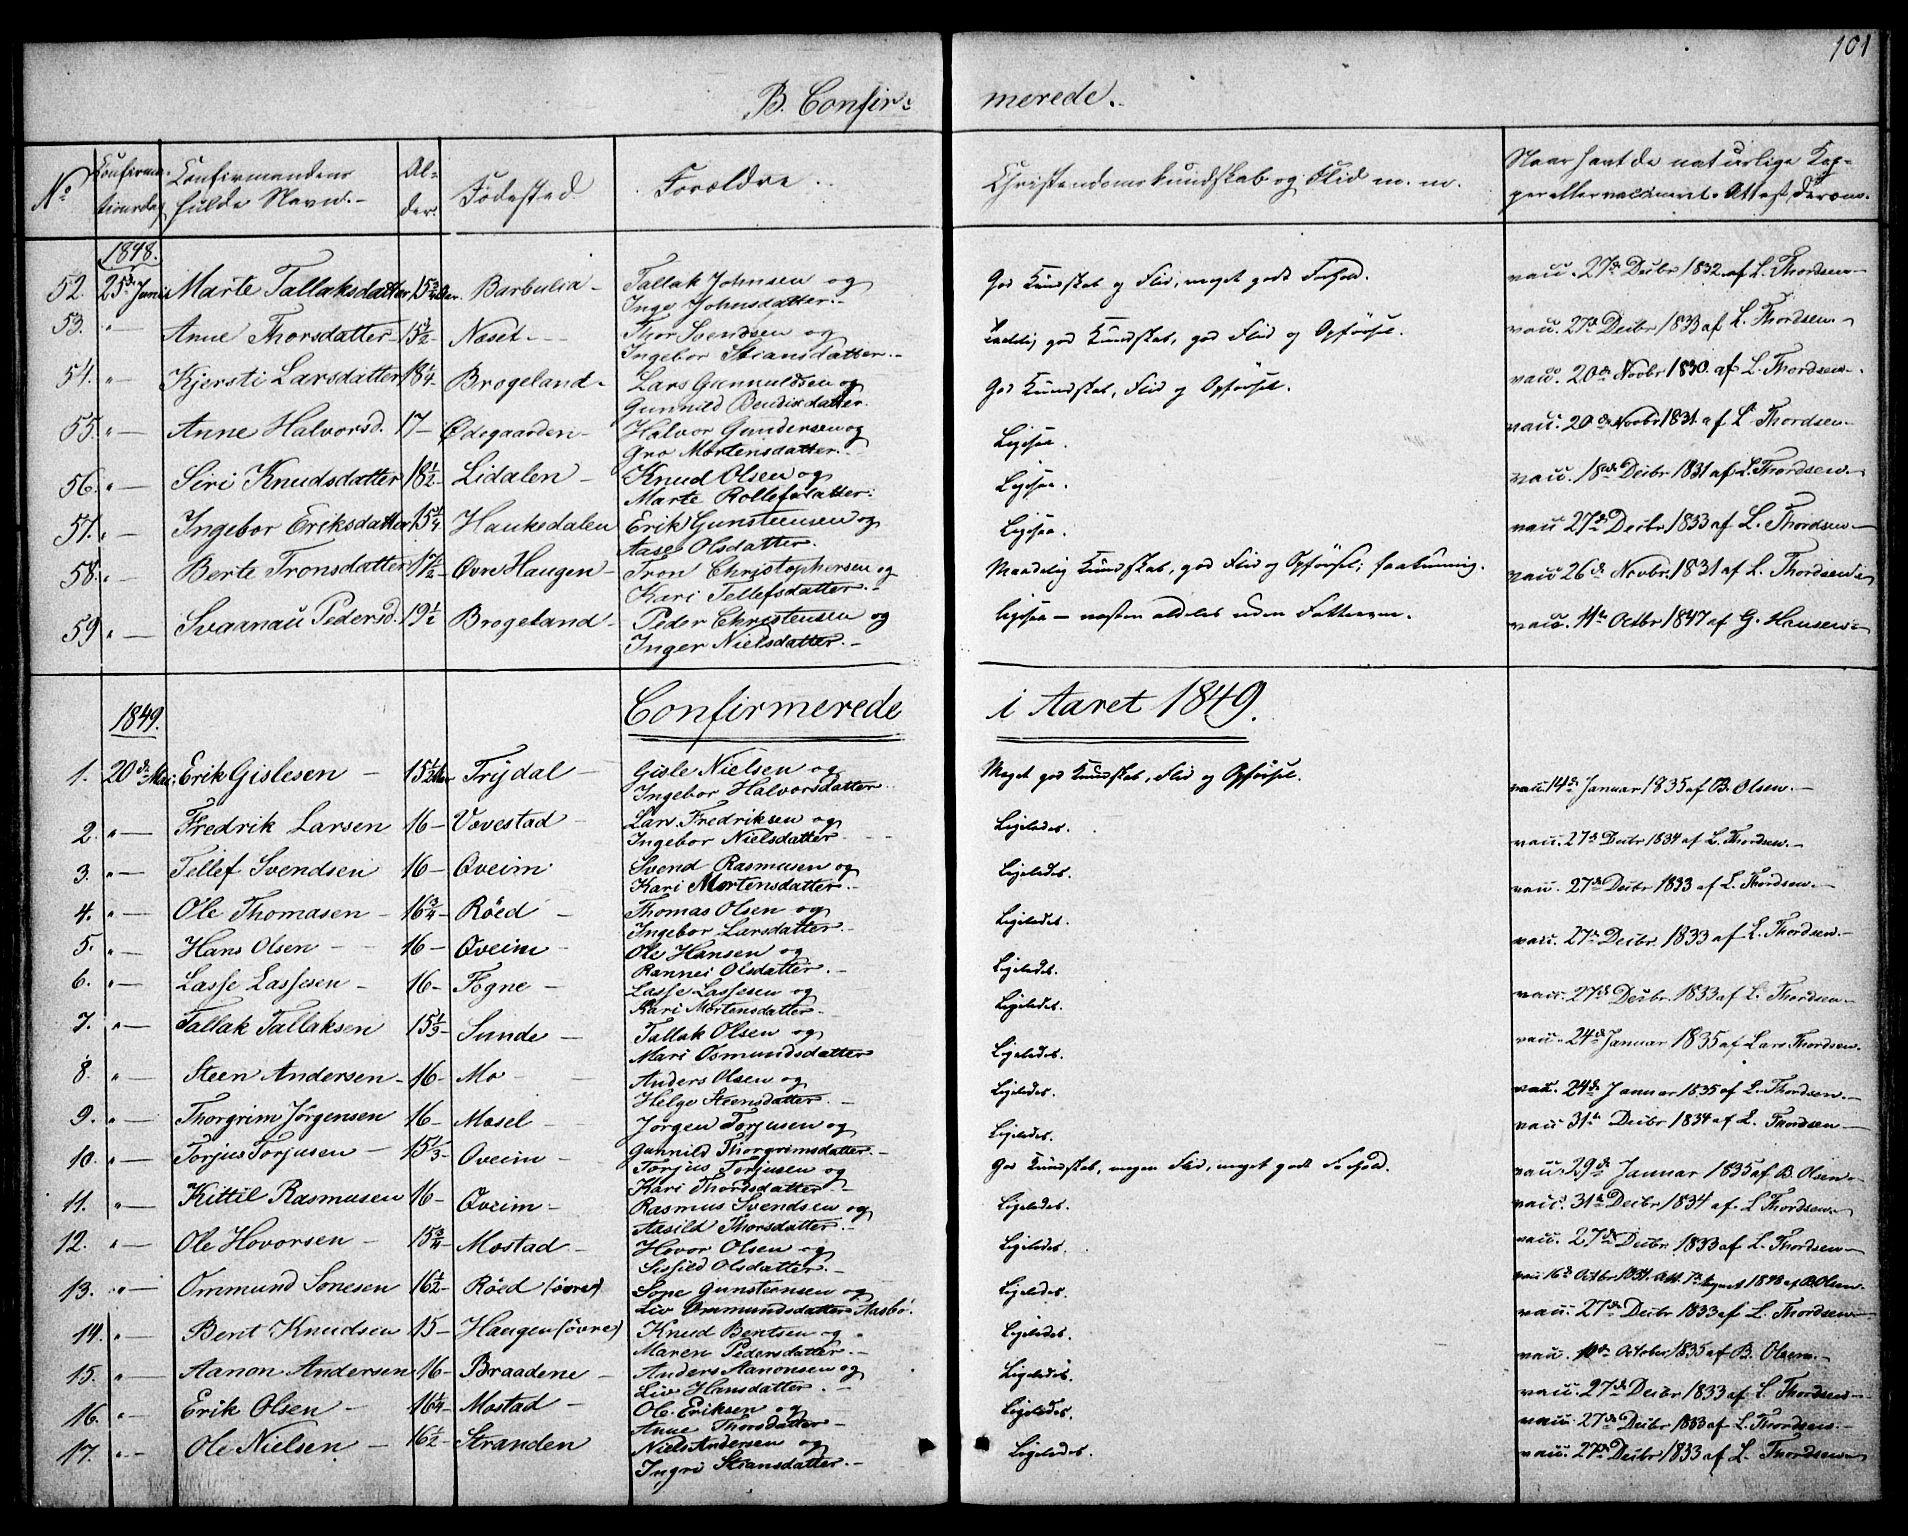 101
B. Confir- merede.
No Confirmationsdag Confirmandens fulde Navn. Alder Fødested Forældre Christendomskundskab og Flid m. m. Naar havt de naturlige Kopper eller vaccineret. Attest derom.
1848.
52. 25de Juni Marte Tallaksdatter 15 3/4 Aar Barbulia Tallak Johnsen og Inge Johnsdatter. God Kundskab og Flid, meget godt Forhold. vacc. 27de Decbr 1832 af L. Thordsen
53. " Anne Thorsdatter 15 1/2 Naset Thor Svendsen og Ingebor Stiansdatter. god Kundskab, god Flid og Opførsel. vacc. 27de Decbr 1833 af L. Thordsen
54. " Kjersti Larsdatter 18 1/4 Brogeland Lars Gunnuldsen og Gunnild Bendixdatter. God Kundskab, Flid og Opførsel. vacc. 20de Novbr 1830 af L. Thordsen.
55. " Anne Halvorsd. 17 Ødegaarden Halvor Gundersen og Gro Mortensdatter. Ligesaa. vacc. 20de Novbr 1831 af L. Thordsen
56. " Siri Knudsdatter 18 1/2 Lidalen Knud Olsen og Marte Rollefsdatter. Ligesaa. vacc. 18de Decbr 1831 af L. Thordsen
57. " Ingebor Eriksdatter 15 1/4 Haukedalen Erik Gunsteensen og Aase Olsdatter. Ligesaa. vacc 27de Decbr 1833 af L. Thordsen
58. " Berte Tronsdatter 17 1/2 Øvre Haugen Tron Christophersen og Kari Tellefsdatter. Maadelig Kundskab, god Flid og Opførsel; vacc 26de Novbr. 1831 af L. Thordsen
59 " Svaanau Pedersd. 19 1/2 Brogeland Peder Christensen og Inger Nielsdatter. Ligesaa — næsten aldeles uden Fatteevne. vacc. 11te Octbr 1847 af G. Hansen
1849. Confirmerede i Aaret 1849.
1. 20de Mai Erik Gislesen 15 1/2 Aar Trydal Gisle Nielsen og Ingebor Halvorsdatter. Meget god Kundskab, Flid og Opførsel. vacc. 14de Januar 1835 af B. Olsen.
2. " Fredrik Larsen 16 Vovestad Lars Fredriksen og Ingebor Nielsdatter. Ligeledes. vacc. 27de Decbr 1834 af L. Thordsen.
3. " Tellef Svendsen 16 Qveim Svend Rasmusen og Kari Mortensdatter. Ligeledes. vacc. 27de Decbr 1833 af L. Thordsen.
4. " Ole Thomasen 16 3/4 Røed Thomas Olsen og Ingebor Larsdatter. Ligeledes. vacc. 27de Decbr. 1833 af L. Thordsen.
5. " Hans Olsen 16 Qveim Ole Hansen og Rannei Olsdatter. Ligeledes.
6. " Lasse Lassesen 16 Fogne Lasse Lassesen og Kari Mortensdatter. Ligeledes. vacc. 27de Decbr. 1833 af L. Thordsen
7. " Tallak Tallaksen 15 1/3 Sunde Tallak Olsen og Mari Osmundsdatter Ligeledes. vacc. 24de Januar 1835 af Lars Thordsen.
8. " Steen Andersen 16 Mo Anders Olsen og Helge Steensdatter. Ligeledes. vacc. 24de Januar 1835 af L. Thordsen.
9. " Thorgrim Jørgensen 16 Mosel Jørgen Torjusen og Gunnild Thorgrimsdatter. Ligeledes. vacc 31te Decbr 1834 af L. Thordsen
10. " Torjus Torjusen 15 1/3 Qveim Torjus Torjusen og Kari Thordsdatter. God Kundskab, megen Flid, meget godt Forhold. vacc. 29de Januar 1835 af B. Olsen
11. " Kittil Rasmusen 16 Qveim Rasmus Svendsen og Aasild Thorsdatter. Ligeledes. vacc. 31te Decbr 1834 af L. Thordsen.
12. " Ole Hovorsen 15 3/4 Mostad Hovor Olsen og Sissild Olsdatter. Ligeledes. vacc. 27de Decbr 1833 af L. Thordsen
13. " Ommund Sonesen 16 1/2 Røed (øvre) Sone Gunstensen og Liv Ommundsdatter Aasbø. Ligeledes. vacc 16de Octbr 1834. Att. 7de August 1848 af B. Olsen
14. " Bent Knudsen 15 Haugen (øvre) Knud Bentsen og Maren Pedersdatter. Ligeledes. vacc. 27de Decbr 1833 af L. Thordsen
15. " Aanon Andersen 16 Braadene Anders Aanonsen og Liv Hansdatter. Ligeledes. vacc. 10de October 1835 af B. Olsen.
16. " Erik Olsen 16 1/4 Mostad Ole Eriksen og Anne Thorsdatter Ligeledes. vacc. 27de Decbr 1833 af L. Thordsen
vacc. 27de Decbr 1833 af L. Thordsen.
17. " Ole Nielsen 16 1/2 Stranden Niels Andersen og Ingri Stiansdatter. Ligeledes. vacc. 27de Decbr 1833 af L. Thordsen